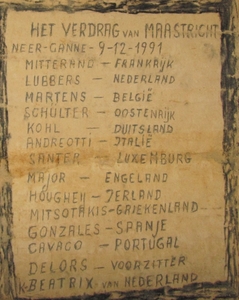 HET VERDRAG VAN MAASTRICHT
NEER-GANNE-9-12-1991
MITTERAND - FRANKRIJK
LUBBERS - NEDERLAND
MARTENS - BELGIË
SCHÜLTER - OOSTENRIJK
KOHL - DUITSLAND
ANDREOTTI - ITALIË
SANTER - LUXEMBURG
MAJOR - ENGELAND
HOUGHEN - IERLAND
MITSOTAKIS - GRIEKENLAND
GONZALES - SPANJE
CAVACO - PORTUGAL
DELORS - VOORZITTER
K-BEATRIX, VAN NEDERLAND